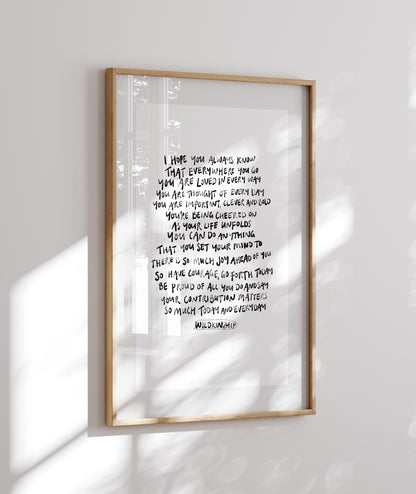 I HOPE YOU ALWAYS KNOW
THAT EVERYWHERE YOU GO
YOU ARE LOVED IN EVERY WAY
YOU ARE THOUGHT OF EVERY DAY
YOU ARE IMPORTANT, CLEVER AND BOLD
YOU'RE BEING CHEERED ON
AS YOUR LIFE UNFOLDS
YOU CAN DO ANYTHING
THAT YOU SET YOUR MIND TO
THERE IS SO MUCH JOY AHEAD OF YOU
SO HAVE COURAGE, GO FORTH TODAY
BE PROUD OF ALL YOU DO AND SAY
YOUR CONTRIBUTION MATTERS
SO MUCH TODAY AND EVERYDAY
WILDKINSHIP